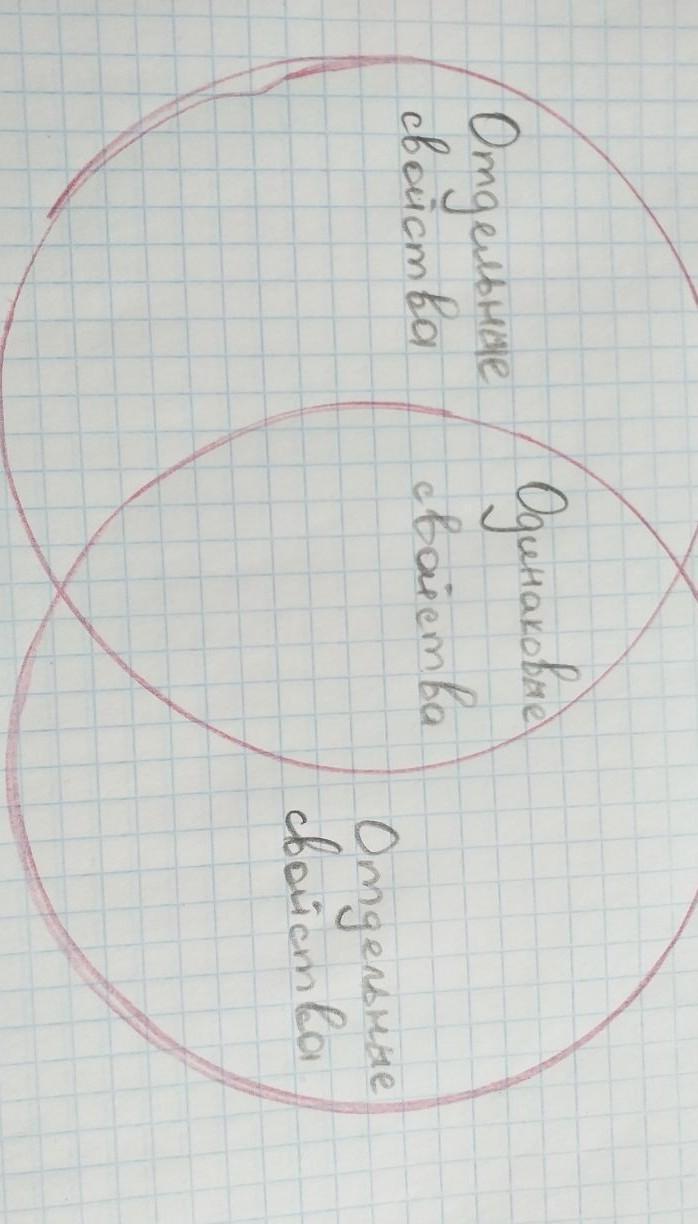 Отдельные
свойства
Одинаковые
свойства
Отдельные
свойства